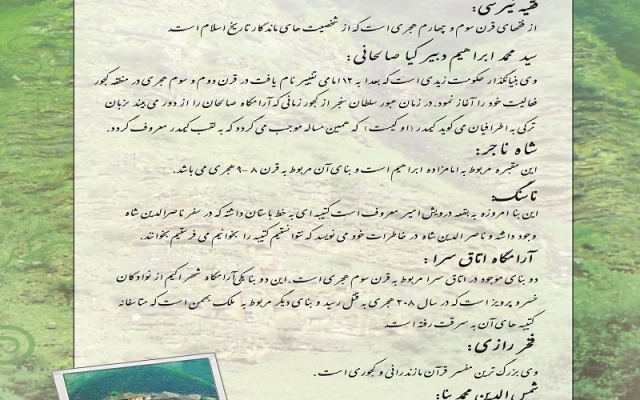 فقیه تیرسی:
از فقهای قرن سوم و چهارم هجری است که از شخصیت های ماندگار تاریخ اسلام است
سید محمد ابراهیم دبیر کیا صالحانی:
وی بنیانگذار حکومت زیدی است که بعدا به ۱۲ امامی تغییر نام یافت در قرن دوم و سوم هجری در منطقه کجور
فعالیت خود را آغاز نمود. در زمان عبور سلطان سنجر از کجور زمانی که آرامگاه صالحان را از دور می بیند بزبان
ترکی به اطرافیان می گوید کیمدر (او کیست) که همین مساله موجب می گردد که به لقب کیمدر معروف گردد.
شاه ناجر:
این مقبره مربوط به امامزاده ابراهیم است و بنای آن مربوط به قرن ۸-۹ هجری می باشد.
ناسنگ:
این بنا امروزه به بقعه درویش امیر معروف است کتیبه ای به خط باستان داشته که در سفر ناصرالدین شاه
وجود داشته و ناصرالدین شاه در خاطرات خود می نویسد که نتوانستیم کتیبه را بخوانیم می فرستیم بخوانند.
آرامگاه اتاق سرا:
دو بنای موجود در اتاق سرا مربوط به قرن سوم هجری است. این دو بنا یکی آرامگاه شهراکیم از نوادگان
خسرو پرویز است که در سال ۲۰۸ هجری به قتل رسید و بنای دیگر مربوط به ملک بهمن است که متاسفانه
کتیبه های آن به سرقت رفته است
فخر رازی:
وی بزرگ ترین مفسر قرآن مازندرانی و کجوری است.
شمس الدین محمد بنا: